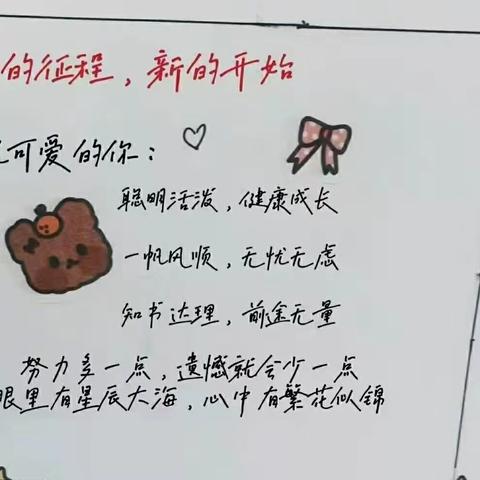 的征程，新的开始
可爱的你：
聪明活泼，健康成长
一帆风顺，无忧无虑
知书达理，前途无量
努力多一点，遗憾就会少一点
眼里有星辰大海，心中有繁花似锦